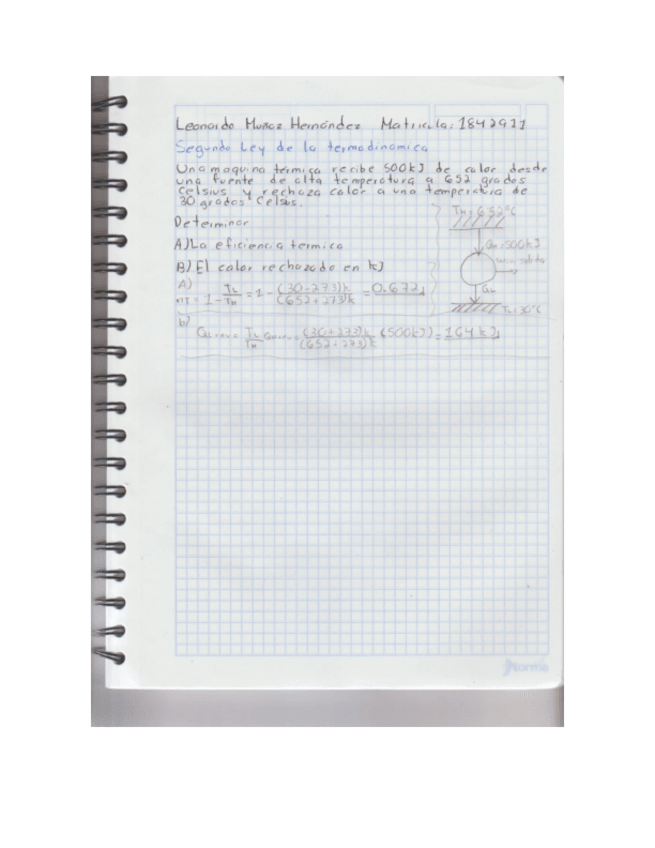 Leonardo Muñoz Hernández Matricula: 1842931
Segundo Ley de la termodinamica
Una maquina térmica recibe 500kJ de calor desde
una fuente de alta temperatura a 652 grados
Celsius y rechaza calor a una temperatura de
30 grados Celsius.
Determinar
A) La eficiencia termica
B) El calor rechazado en kJ
TH = 652°C
QH = 500kJ
salida
QL
TL = 30°C
A)
= 1 - TL/TH = 1 - (30-273)k/(652+273)k = 0.672
b)
QL rev = TL/TH = (30+273)k/(652+273)k (500kJ) = 164kJ
Norma